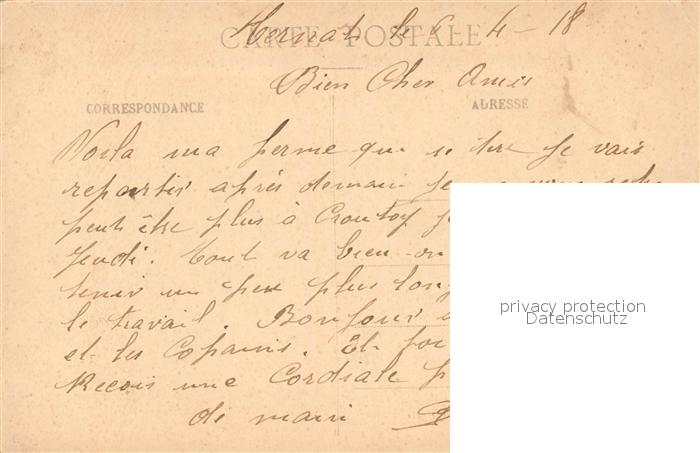 le 6 4 - 18
CARTE POSTALE
Bien Cher Amis
CORRESPONDANCE
ADRESSE
Voila ma perme qui se tire Je vais
repartir après demain
peut être plus à Croutoy
Jeudi. Tout va bien on
tenir un peu plus long
le travail. Bonjour a
et les Copains. Et
Recois une Cordiale p
de main
privacy protection
Datenschutz